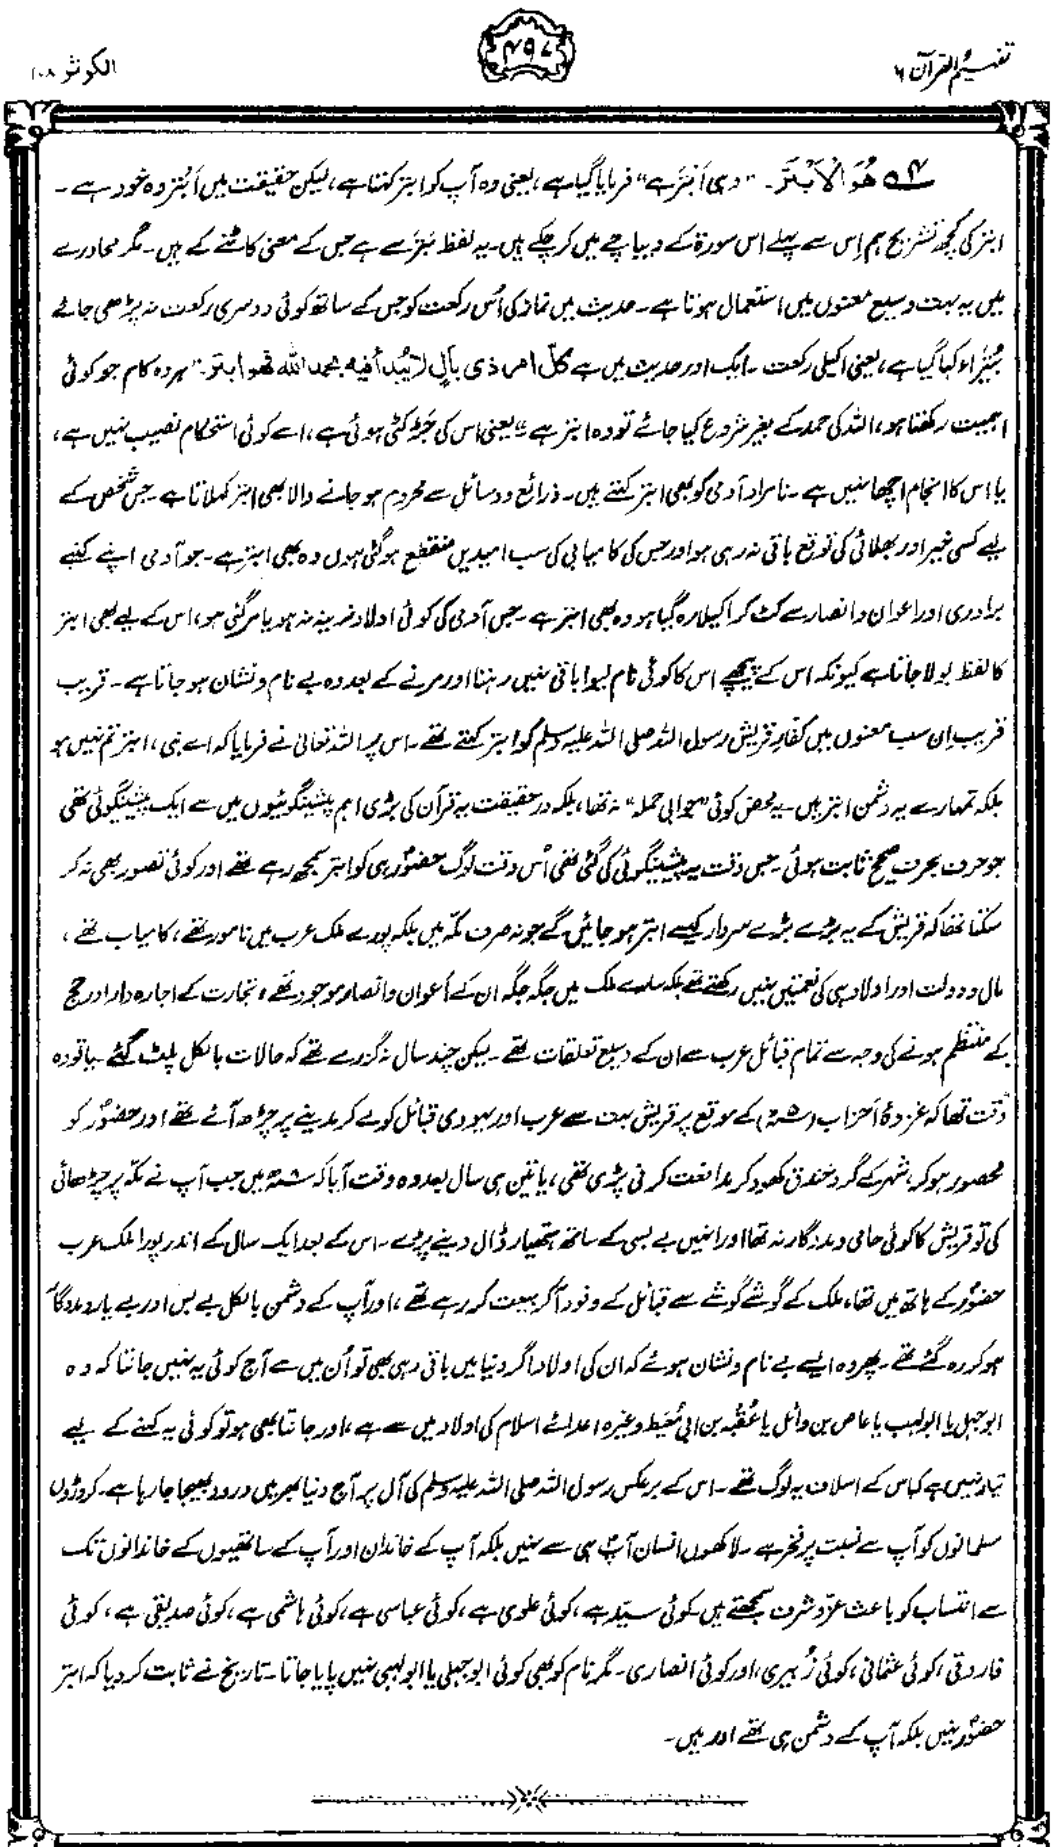 تفہیم القرآن ۶
۴۹۷
الکوثر ۱۰۸
۴ھ هُوَ الْاَبْتَرُ۔ "وہی اَبْتَر ہے" فرمایا گیا ہے، یعنی وہ آپ کو ابتر کہتا ہے، لیکن حقیقت میں اَبْتَر وہ خود ہے۔
ابتر کی کچھ تشریح ہم اِس سے پہلے اس سورۃ کے دیباچے میں کر چکے ہیں۔ یہ لفظ بَتَر سے ہے جس کے معنی کاٹنے کے ہیں۔ مگر محاورے
میں یہ بہت وسیع معنوں میں استعمال ہوتا ہے۔ حدیث میں نماز کی اُس رکعت کو جس کے ساتھ کوئی دوسری رکعت نہ پڑھی جائے
بُتَیْرَاء کہا گیا ہے، یعنی اکیلی رکعت۔ ایک اور حدیث میں ہے کلّ امرٍ ذی بالٍ لا یُبدأ فیه بحمد اللّٰه فهو ابتر۔ "ہر وہ کام جو کوئی
اہمیت رکھتا ہو، اللہ کی حمد کے بغیر شروع کیا جائے تو وہ ابتر ہے" یعنی اس کی جَڑ کٹی ہوئی ہے، اسے کوئی استحکام نصیب نہیں ہے،
یا اس کا انجام اچھا نہیں ہے۔ نامراد آدمی کو بھی ابتر کہتے ہیں۔ ذرائع و وسائل سے محروم ہو جانے والا بھی ابتر کہلاتا ہے۔ جس شخص کے
لیے کسی خیر اور بھلائی کی توقع باقی نہ رہی ہو اور جس کی کامیابی کی سب امیدیں منقطع ہو گئی ہوں وہ بھی ابتر ہے۔ جو آدمی اپنے کنبے
برادری اور اعوان و انصار سے کٹ کر اکیلا رہ گیا ہو وہ بھی ابتر ہے۔ جس آدمی کی کوئی اولادِ نرینہ نہ ہو یا مر گئی ہو، اس کے لیے بھی ابتر
کا لفظ بولا جاتا ہے کیونکہ اس کے پیچھے اس کا کوئی نام لیوا باقی نہیں رہتا اور مرنے کے بعد وہ بے نام و نشان ہو جاتا ہے۔ قریب
قریب اِن سب معنوں میں کفارِ قریش رسول اللہ صلی اللہ علیہ وسلم کو ابتر کہتے تھے۔ اس پر اللہ تعالیٰ نے فرمایا کہ اے نبی، ابتر تم نہیں ہو
بلکہ تمہارے یہ دشمن ابتر ہیں۔ یہ محض کوئی "جوابی حملہ" نہ تھا، بلکہ در حقیقت یہ قرآن کی بڑی اہم پیشینگوئیوں میں سے ایک پیشینگوئی تھی
جو حرف بحرف صحیح ثابت ہوئی۔ جس وقت یہ پیشینگوئی کی گئی تھی اُس وقت لوگ حضورؐ ہی کو ابتر سمجھ رہے تھے اور کوئی تصور بھی نہ کر
سکتا تھا کہ قریش کے یہ بڑے بڑے سردار کیسے ابتر ہو جائیں گے جو نہ صرف مکّہ میں بلکہ پورے ملک عرب میں نامور تھے، کامیاب تھے،
مال و دولت اور اولاد ہی کی نعمتیں نہیں رکھتے تھے بلکہ سارے ملک میں جگہ جگہ ان کے اَعوان و انصار موجود تھے، تجارت کے اجارہ دار اور حج
کے منتظم ہونے کی وجہ سے تمام قبائل عرب سے ان کے وسیع تعلقات تھے۔ لیکن چند سال نہ گزرے تھے کہ حالات بالکل پلٹ گئے۔ یا تو وہ
وقت تھا کہ غزوۂ اَحزاب (۵ھ) کے موقع پر قریش بہت سے عرب اور یہودی قبائل کو لے کر مدینے پر چڑھ آئے تھے اور حضورؐ کو
محصور ہو کر، شہر کے گرد خندق کھود کر مدافعت کرنی پڑی تھی، یا تین ہی سال بعد وہ وقت آیا کہ ۸ھ میں جب آپ نے مکّہ پر چڑھائی
کی تو قریش کا کوئی حامی و مددگار نہ تھا اور انہیں بے بسی کے ساتھ ہتھیار ڈال دینے پڑے۔ اس کے بعد ایک سال کے اندر پورا ملک عرب
حضورؐ کے ہاتھ میں تھا، ملک کے گوشے گوشے سے قبائل کے وفود آکر بیعت کر رہے تھے، اور آپ کے دشمن بالکل بے بس اور بے یار و مددگار
ہو کر رہ گئے تھے۔ پھر وہ ایسے بے نام و نشان ہوئے کہ ان کی اولاد اگر دنیا میں باقی رہی بھی تو اُن میں سے آج کوئی یہ نہیں جانتا کہ وہ
ابوجہل یا ابولہب یا عاص بن وائل یا عُقْبہ بن ابی مُعَیط وغیرہ اعدائے اسلام کی اولاد میں سے ہے، اور جانتا بھی ہو تو کوئی یہ کہنے کے لیے
تیار نہیں ہے کہ اس کے اسلاف یہ لوگ تھے۔ اس کے برعکس رسول اللہ صلی اللہ علیہ وسلم کی آل پر آج دنیا بھر میں درود بھیجا جا رہا ہے۔ کروڑوں
مسلمانوں کو آپ سے نسبت پر فخر ہے۔ لاکھوں انسان آپؐ ہی سے نہیں بلکہ آپ کے خاندان اور آپ کے ساتھیوں کے خاندانوں تک
سے انتساب کو باعث عزّ و شرف سمجھتے ہیں۔ کوئی سیّد ہے، کوئی علوی ہے، کوئی عباسی ہے، کوئی ہاشمی ہے، کوئی صدیقی ہے، کوئی
فاروقی، کوئی عثمانی، کوئی زُبیری، اور کوئی انصاری۔ مگر نام کو بھی کوئی ابوجہلی یا ابولہبی نہیں پایا جاتا۔ تاریخ نے ثابت کر دیا کہ ابتر
حضورؐ نہیں بلکہ آپ کے دشمن ہی تھے اور ہیں۔